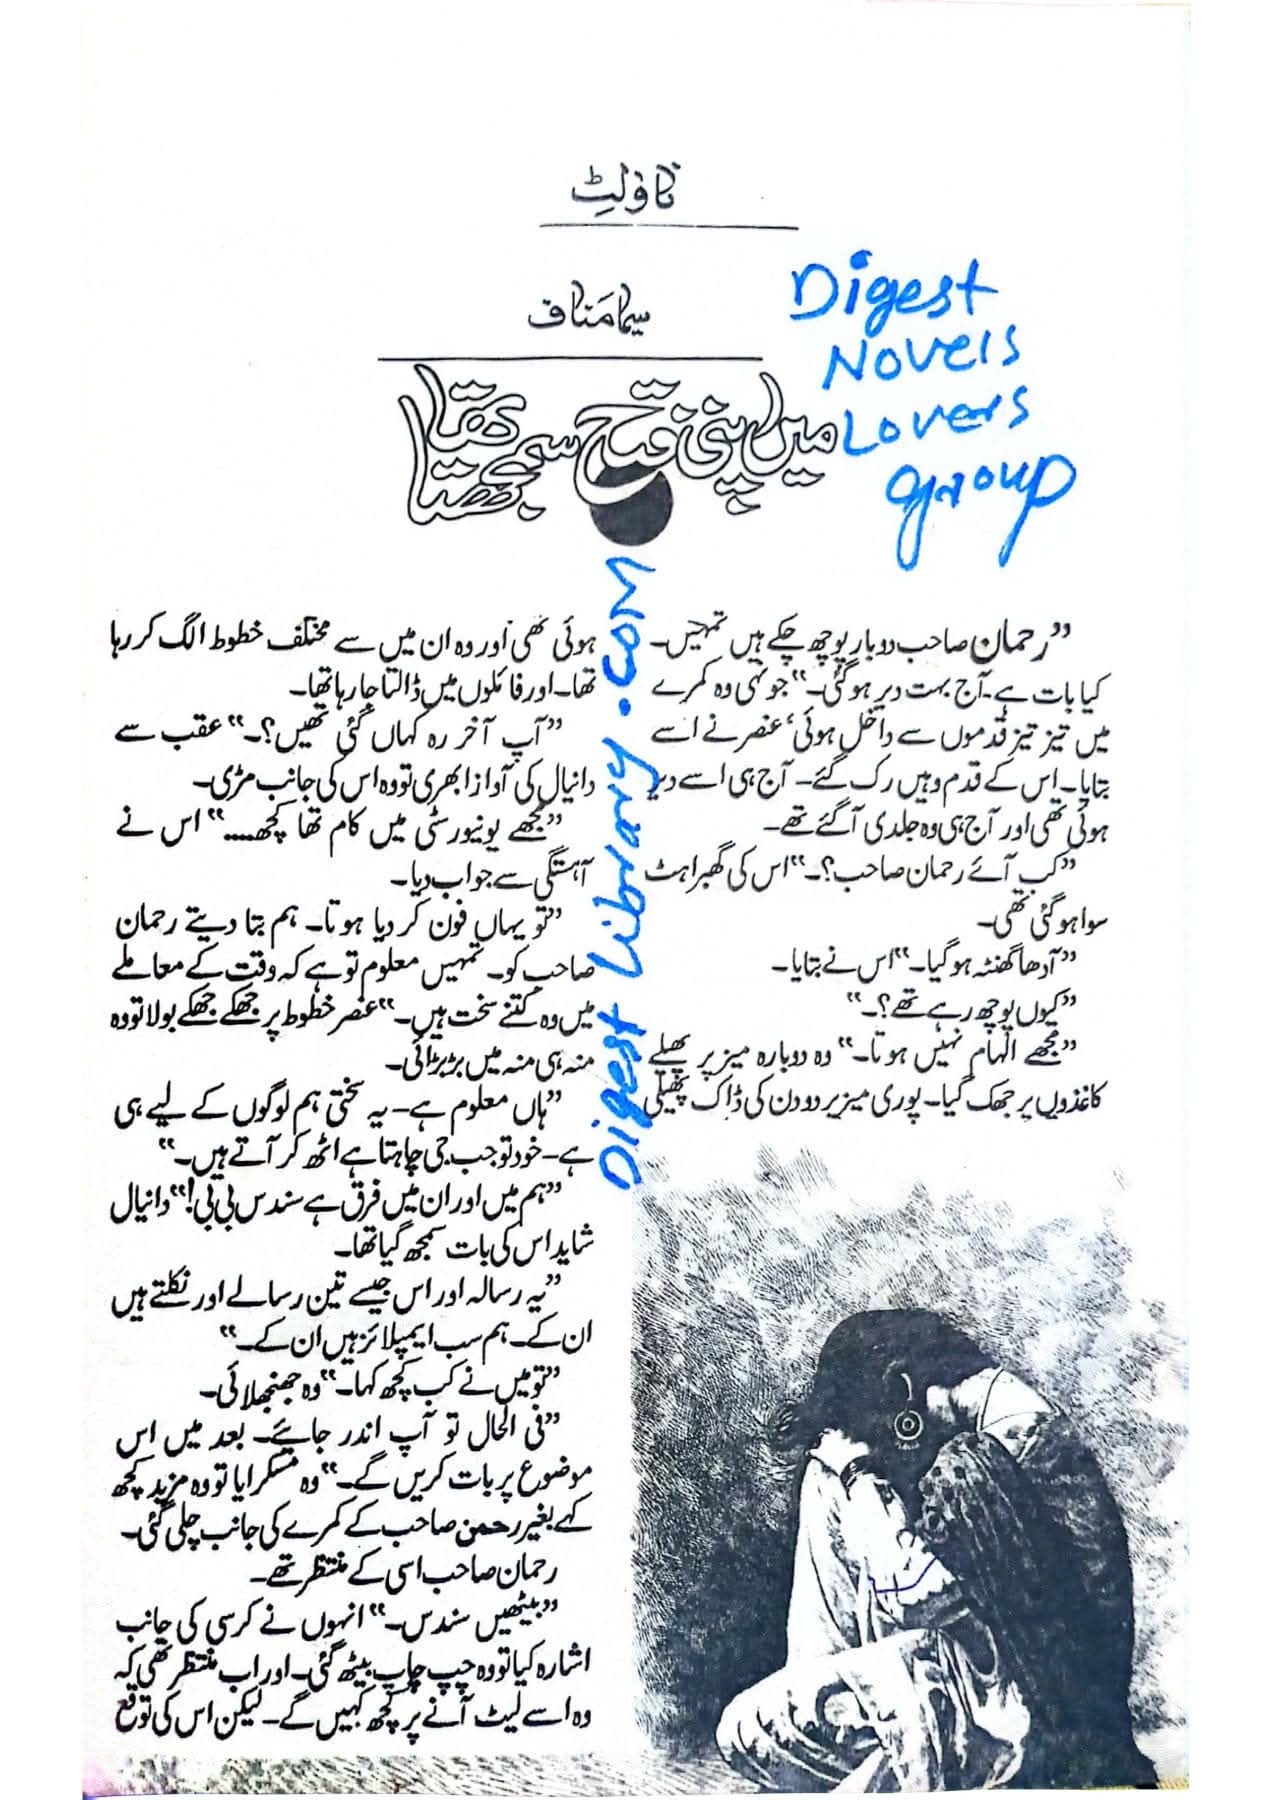 ناولٹ
سیما مناف
میں اپنی فتح سمجھتا تھا
Digest
Novels
Lovers
group
Digest Library.com
”رحمان صاحب دوبار پوچھ چکے ہیں تمہیں۔
کیا بات ہے۔ آج بہت دیر ہو گئی۔“ جونہی وہ کمرے
میں تیز تیز قدموں سے داخل ہوئی‘ عنصر نے اسے
بتایا۔ اس کے قدم وہیں رک گئے۔ آج ہی اسے دیر
ہوئی تھی اور آج ہی وہ جلدی آ گئے تھے۔
”کب آئے رحمان صاحب؟۔“ اس کی گھبراہٹ
سوا ہو گئی تھی۔
”آدھا گھنٹہ ہو گیا۔“ اس نے بتایا۔
”کیوں پوچھ رہے تھے؟۔“
”مجھے الہام نہیں ہوتا۔“ وہ دوبارہ میز پر پھیلے
کاغذوں پر جھک گیا۔ پوری میز پر دو دن کی ڈاک پھیلی
ہوئی تھی اور وہ ان میں سے مختلف خطوط الگ کر رہا
تھا۔ اور فائلوں میں ڈالتا جا رہا تھا۔
”آپ آخر رہ کہاں گئی تھیں؟۔“ عقب سے
دانیال کی آواز ابھری تو وہ اس کی جانب مڑی۔
”مجھے یونیورسٹی میں کام تھا کچھ....“ اس نے
آہستگی سے جواب دیا۔
”تو یہاں فون کر دیا ہوتا۔ ہم بتا دیتے رحمان
صاحب کو۔ تمہیں معلوم تو ہے کہ وقت کے معاملے
میں وہ کتنے سخت ہیں۔“ عنصر خطوط پر جھکے جھکے بولا تو وہ
منہ ہی منہ میں بڑبڑائی۔
”ہاں معلوم ہے۔ یہ سختی ہم لوگوں کے لیے ہی
ہے۔ خود تو جب جی چاہتا ہے اٹھ کر آتے ہیں۔“
”ہم میں اور ان میں فرق ہے سندس بی بی!“ دانیال
شاید اس کی بات سمجھ گیا تھا۔
”یہ رسالہ اور اس جیسے تین رسالے اور نکلتے ہیں
ان کے۔ ہم سب ایمپلائز ہیں ان کے۔“
”تو میں نے کب کچھ کہا۔“ وہ جھنجھلائی۔
”فی الحال تو آپ اندر جائیے۔ بعد میں اس
موضوع پر بات کریں گے۔“ وہ مسکرایا تو وہ مزید کچھ
کہے بغیر رحمن صاحب کے کمرے کی جانب چلی گئی۔
رحمان صاحب اسی کے منتظر تھے۔
”بیٹھیں سندس۔“ انہوں نے کرسی کی جانب
اشارہ کیا تو وہ چپ چاپ بیٹھ گئی۔ اور اب منتظر تھی کہ
وہ اسے لیٹ آنے پر کچھ کہیں گے۔ لیکن اس کی توقع